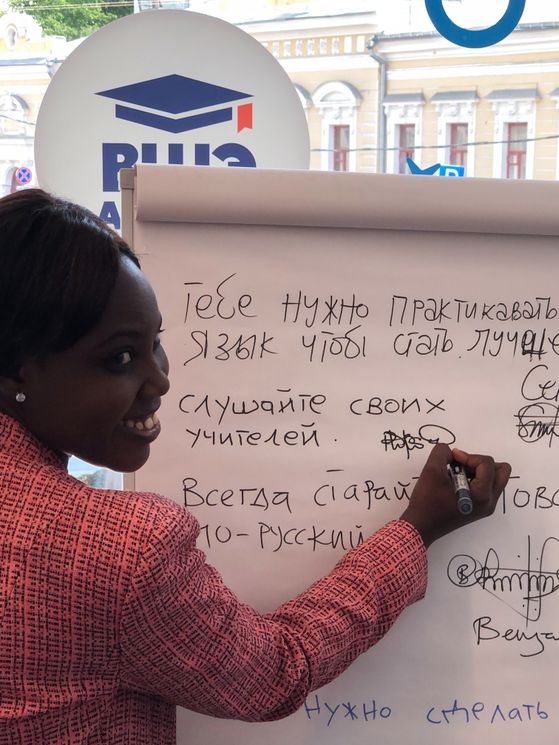 ВШЭ
Р
Тебе нужно практикавать
язык чтобі стать лучше
слушайте своих
учителей.
Всегда старай
по-русский
нужно сделать